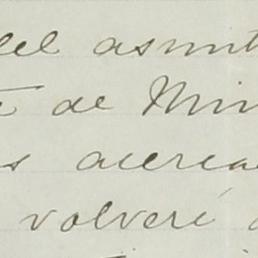 del asunt
de Min
s acerca
volveré